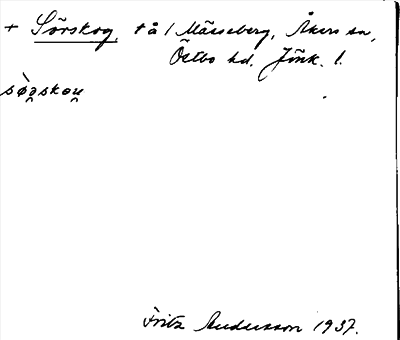 + Sörskog, tå / Mässeberg, Åkers sn,
Östbo hd. Jönk. l.
Fritz Andersson 1937.